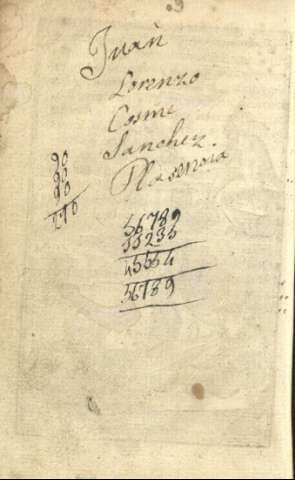 Juan
Lorenzo
Cosme
Sanchez.
Plasencia
90
90
90
270
56789
11235
45554
56789